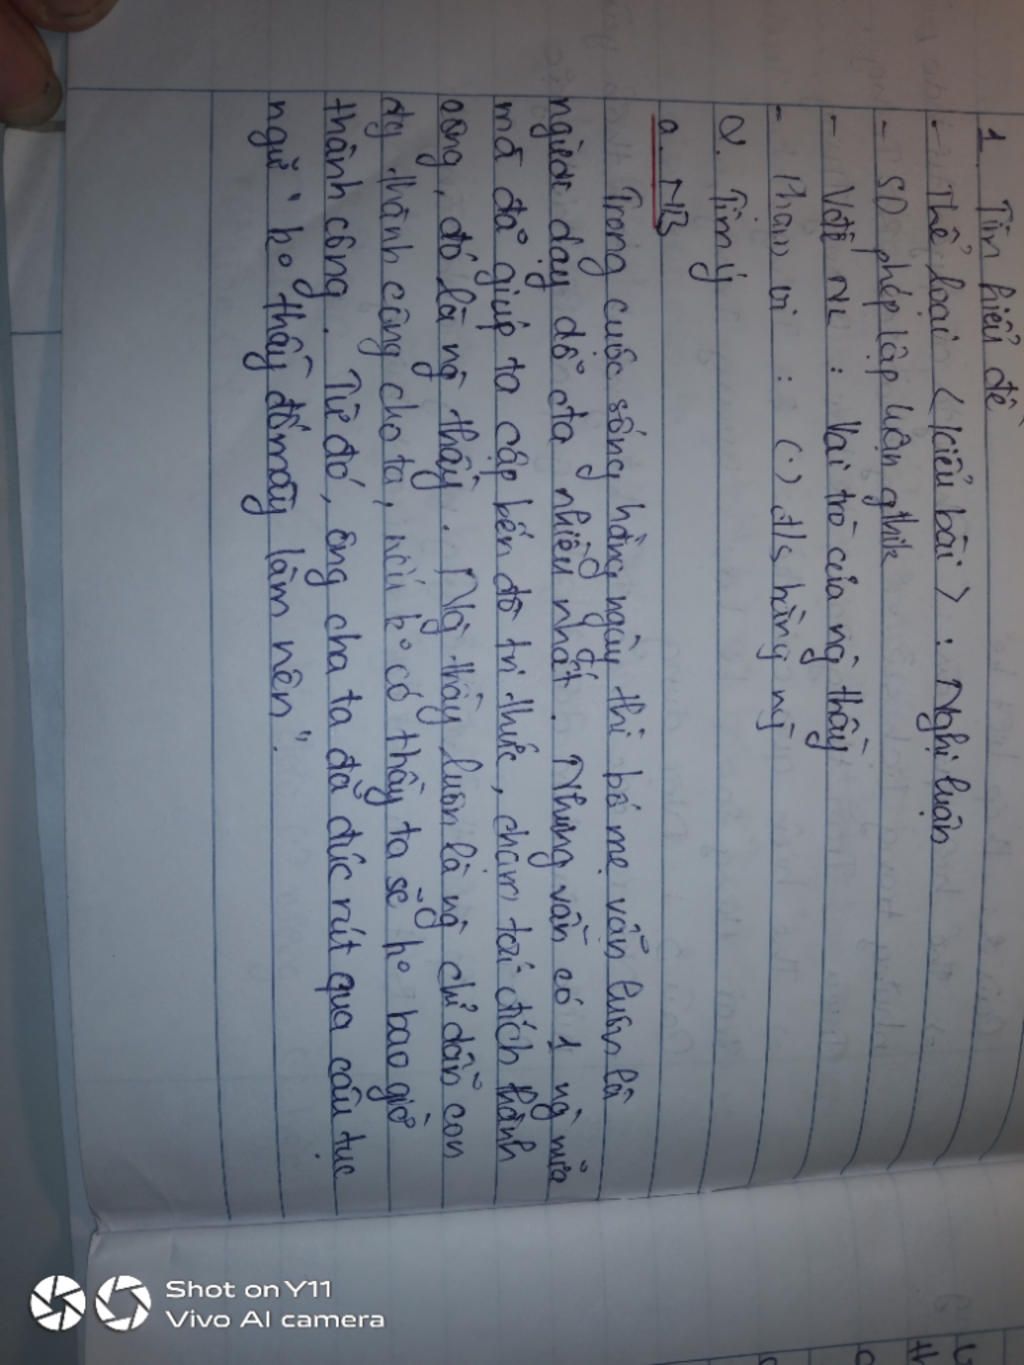 1. Tìm hiểu đề
- Thể loại <kiểu bài> : Nghị luận
- SD phép lập luận gthik
- Vđề NL : Vai trò của ng thầy
- Phạm vi : (.) đ/s hằng ng
2. Tìm ý
a. MB
Trong cuộc sống hằng ngày thì bố mẹ vẫn luôn là
người dạy dỗ cta nhiều nhất. Nhưng vẫn có 1 ng nữa
mà đã giúp ta cập bến đò tri thức, chạm tới đích thành
công, đó là ng thầy. Ng thầy luôn là ng chỉ dẫn con
đg thành công cho ta, nếu ko có thầy ta sẽ ko bao giờ
thành công. Từ đó, ông cha ta đã đúc rút qua câu tục
ngữ "ko thầy đố mày làm nên".
Shot on Y11
Vivo AI camera